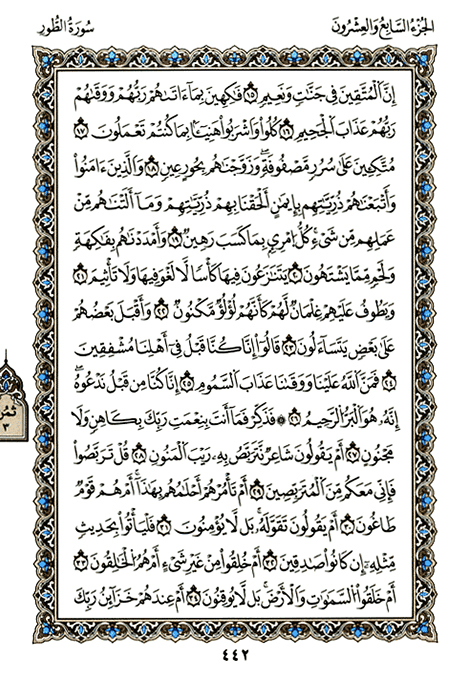 الجزء السابع والعشرون
سورة الطور
إِنَّ الْمُتَّقِينَ فِي جَنَّٰتٍ وَنَعِيمٍ ١٥ فَٰكِهِينَ بِمَا ءَاتَىٰهُمْ رَبُّهُمْ وَوَقَىٰهُمْ
رَبُّهُمْ عَذَابَ الْجَحِيمِ ١٦ كُلُوا وَاشْرَبُوا هَنِيئًا بِمَا كُنتُمْ تَعْمَلُونَ ١٧
مُتَّكِـِٔينَ عَلَىٰ سُرُرٍ مَّصْفُوفَةٍ وَزَوَّجْنَٰهُم بِحُورٍ عِينٍ ١٨ وَالَّذِينَ ءَامَنُوا
وَأَتْبَعْنَٰهُمْ ذُرِّيَّٰتِهِم بِإِيمَٰنٍ أَلْحَقْنَا بِهِمْ ذُرِّيَّٰتِهِمْ وَمَا أَلَتْنَٰهُم مِّنْ
عَمَلِهِم مِّن شَيْءٍ كُلُّ امْرِئٍ بِمَا كَسَبَ رَهِينٌ ١٩ وَأَمْدَدْنَٰهُم بِفَٰكِهَةٍ
وَلَحْمٍ مِّمَّا يَشْتَهُونَ ٢٠ يَتَنَٰزَعُونَ فِيهَا كَأْسًا لَّا لَغْوَ فِيهَا وَلَا تَأْثِيمَ ٢١
وَيَطُوفُ عَلَيْهِمْ غِلْمَانٌ لَّهُمْ كَأَنَّهُمْ لُؤْلُؤٌ مَّكْنُونٌ ٢٢ وَأَقْبَلَ بَعْضُهُمْ
عَلَىٰ بَعْضٍ يَتَسَاءَلُونَ ٢٣ قَالُوا إِنَّا كُنَّا قَبْلُ فِي أَهْلِنَا مُشْفِقِينَ
٢٤ فَمَنَّ اللَّهُ عَلَيْنَا وَوَقَىٰنَا عَذَابَ السَّمُومِ ٢٥ إِنَّا كُنَّا مِن قَبْلُ نَدْعُوهُ
إِنَّهُ هُوَ الْبَرُّ الرَّحِيمُ ٢٦ فَذَكِّرْ فَمَا أَنتَ بِنِعْمَتِ رَبِّكَ بِكَاهِنٍ وَلَا
مَجْنُونٍ ٢٧ أَمْ يَقُولُونَ شَاعِرٌ نَّتَرَبَّصُ بِهِ رَيْبَ الْمَنُونِ ٢٨ قُلْ تَرَبَّصُوا
فَإِنِّي مَعَكُم مِّنَ الْمُتَرَبِّصِينَ ٢٩ أَمْ تَأْمُرُهُمْ أَحْلَٰمُهُم بِهَٰذَا أَمْ هُمْ قَوْمٌ
طَاغُونَ ٣٠ أَمْ يَقُولُونَ تَقَوَّلَهُ بَل لَّا يُؤْمِنُونَ ٣١ فَلْيَأْتُوا بِحَدِيثٍ
مِّثْلِهِ إِن كَانُوا صَٰدِقِينَ ٣٢ أَمْ خُلِقُوا مِنْ غَيْرِ شَيْءٍ أَمْ هُمُ الْخَٰلِقُونَ ٣٣
أَمْ خَلَقُوا السَّمَٰوَٰتِ وَالْأَرْضَ بَل لَّا يُوقِنُونَ ٣٤ أَمْ عِندَهُمْ خَزَائِنُ رَبِّكَ
ثمن
٣
٤٤٢